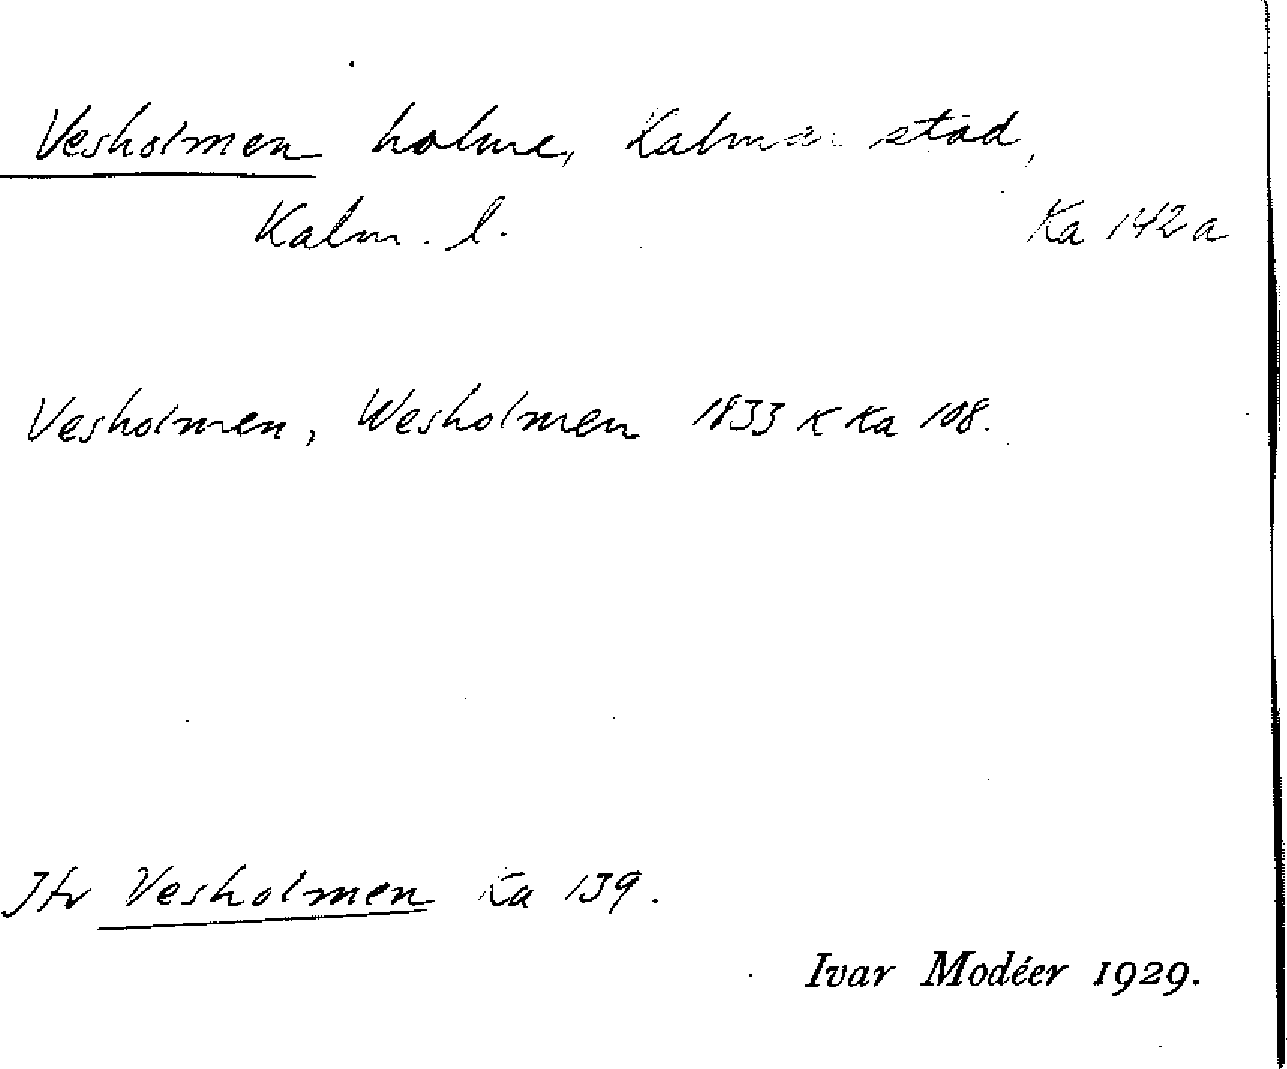 Vesholmen holme, Kalmar stad,
Kalm. l. Ka 142a
Vesholmen, Wesholmen 1833 K Ka 108.
Jfr Vesholmen Ka 139.
Ivar Modéer 1929.